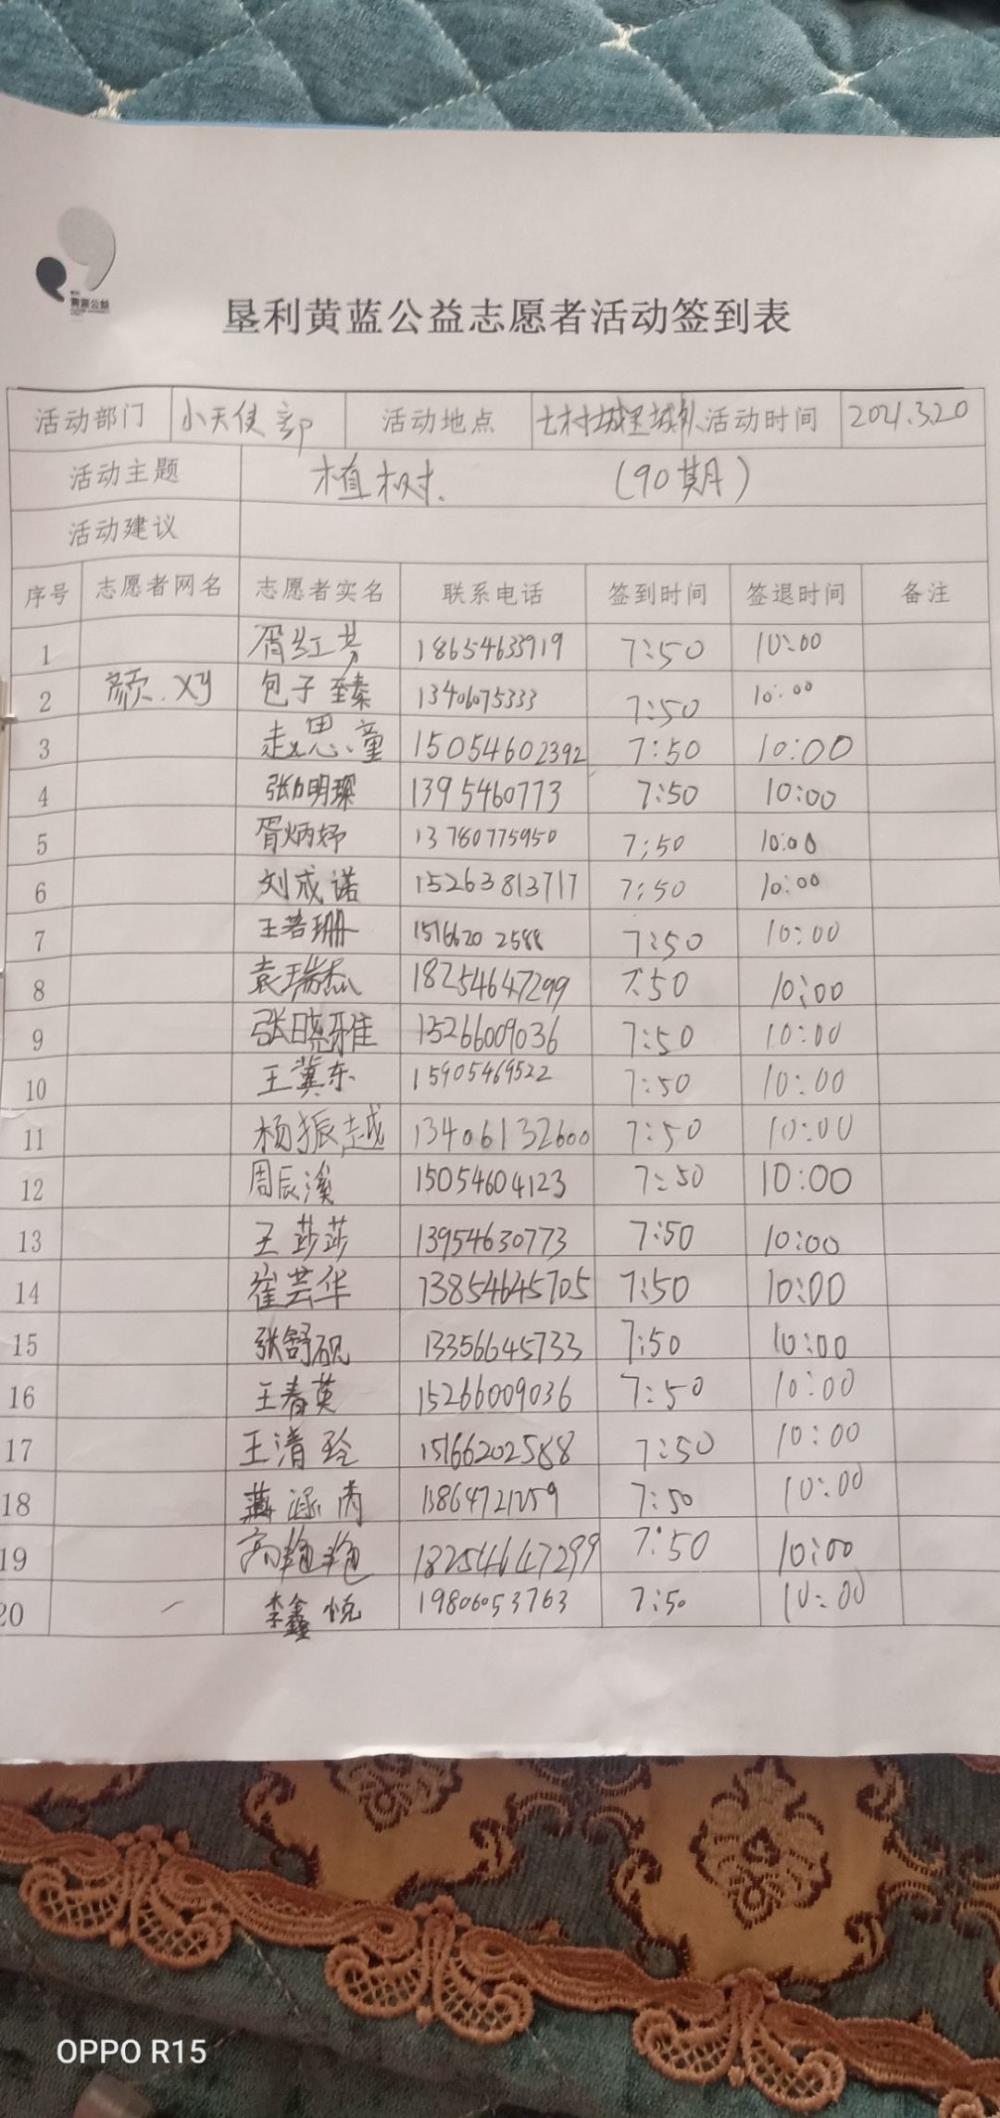 黄蓝公益
垦利黄蓝公益志愿者活动签到表
活动部门 小天使部 活动地点 七村城里城外 活动时间 2021.3.20
活动主题 植树. (90期)
活动建议
序号 志愿者网名 志愿者实名 联系电话 签到时间 签退时间 备注
1 胥红 18654633919 7:50 10:00
2 颜.xy 包子臻 13406075333 7:50 10:00
3 赵思童 15054602392 7:50 10:00
4 张明琛 1395460773 7:50 10:00
5 胥炳妤 13780775950 7:50 10:00
6 刘成诺 15263813717 7:50 10:00
7 王若珊 1516620 2588 7:50 10:00
8 袁瑞杰 18254647299 7:50 10:00
9 张晓雅 15266009036 7:50 10:00
10 王冀东 15905469522 7:50 10:00
11 杨振越 13406132600 7:50 10:00
12 周辰溪 15054604123 7:50 10:00
13 王莎莎 13954630773 7:50 10:00
14 崔芸华 13854645705 7:50 10:00
15 张舒砚 13356645733 7:50 10:00
16 王春英 15266009036 7:50 10:00
17 王清玲 15166202588 7:50 10:00
18 涵 7:50 10:00
19 高艳艳 18254647299 7:50 10:00
20 李鑫悦 19806053763 7:50 10:00
OPPO R15